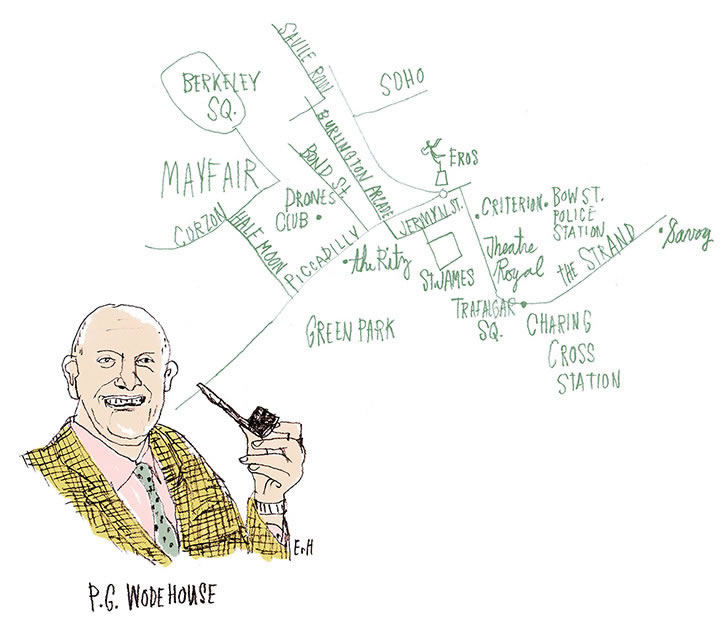 SAVILE ROW
BERKELEY
SQ.
SOHO
BURLINGTON ARCADE
BOND ST.
EROS
MAYFAIR
DRONES
CLUB
CURZON
HALF MOON
PICCADILLY
JERMYN ST.
CRITERION
BOW ST.
POLICE
STATION
THE STRAND
Savoy
the Ritz
ST. JAMES
Theatre
Royal
TRAFALGAR
SQ.
GREEN PARK
CHARING
CROSS
STATION
ErH
P.G. WODEHOUSE